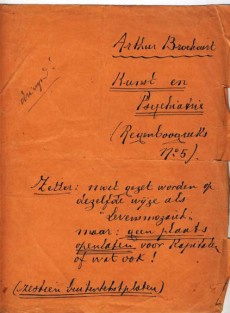 Arthur Broekaert
Kunst en
Psychiatrie
(Regenboogreeks
No 5).
Zetter: moet gezet worden op
dezelfde wijze als
Levensmozaïek
maar: geen plaats
openlaten voor Kapitalen
of wat ook!
(zestien buitentekstplaten)